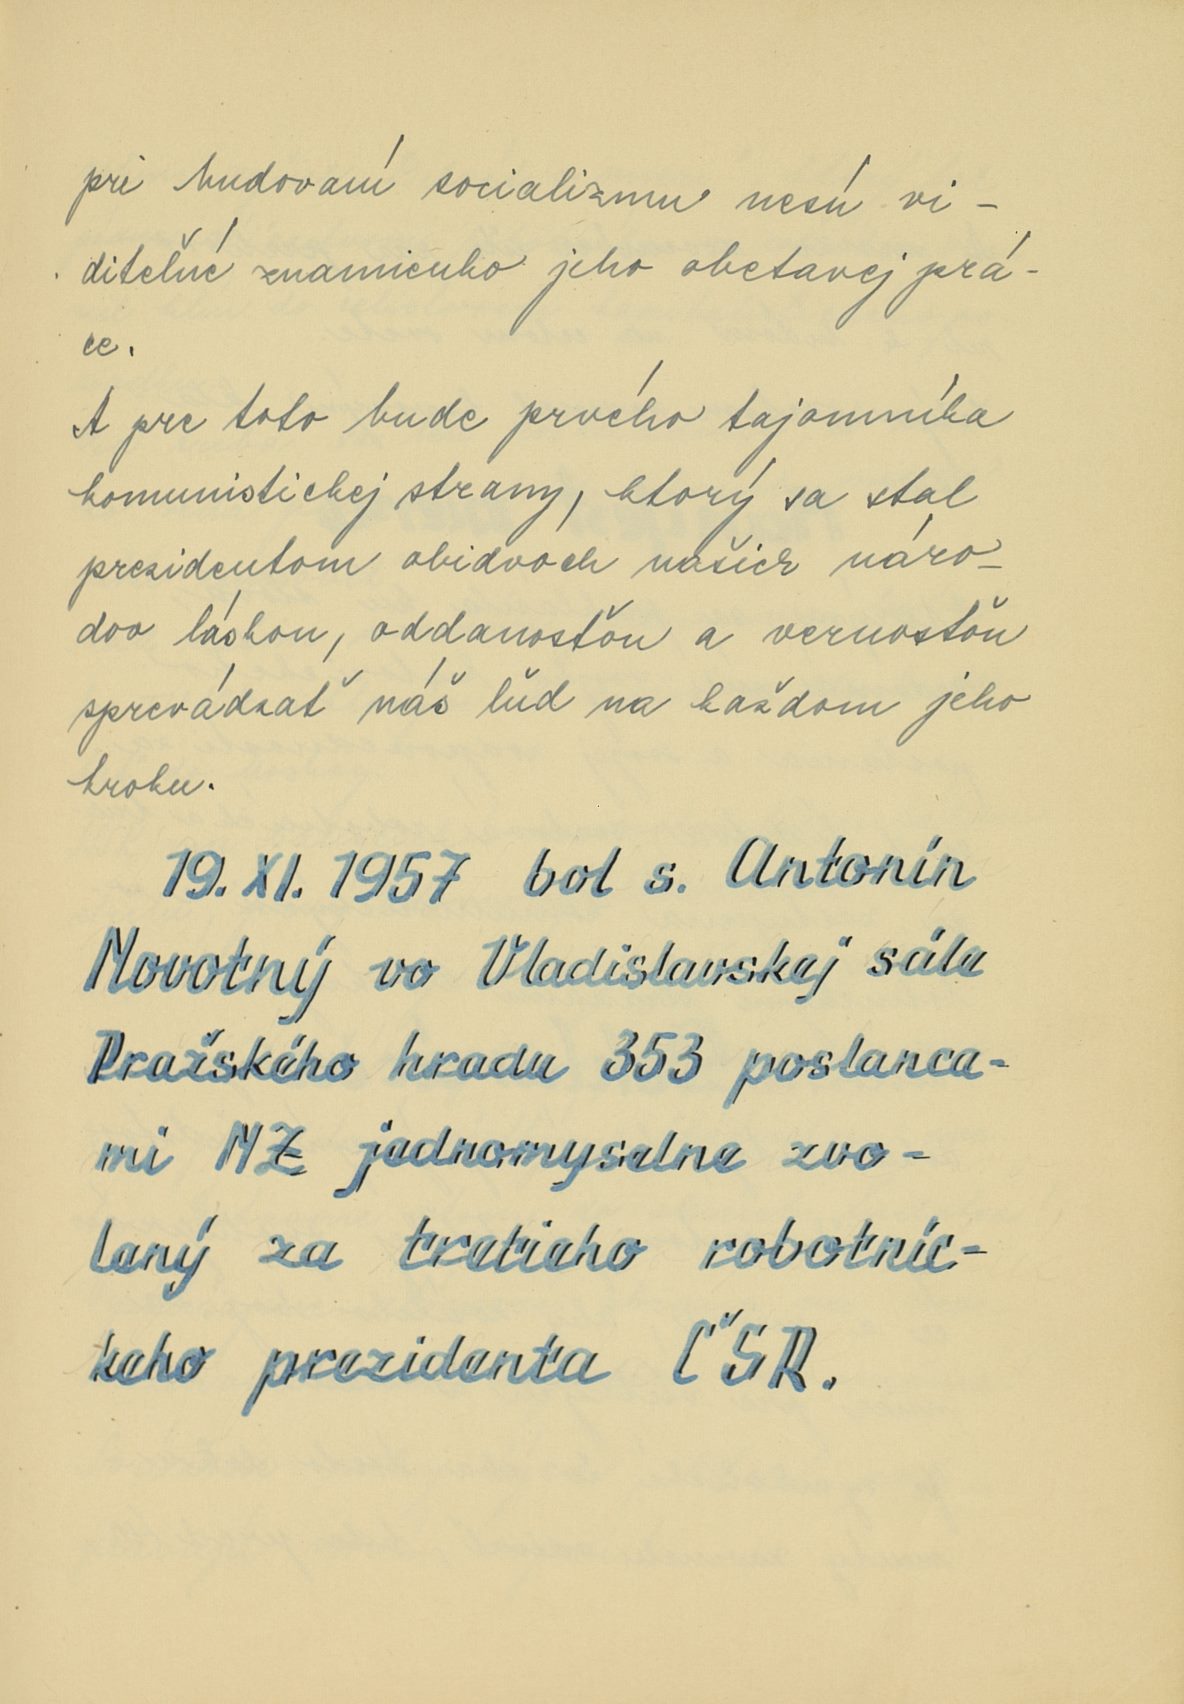 pri budovaní socializmu nesú vi-
diteľné znamienko jeho obetavej prá-
ce.
A pre toto bude prvého tajomníka
komunistickej strany, ktorý sa stal
prezidentom obidvoch našich náro-
dov láskou, oddanosťou a vernosťou
sprevádzať náš ľud na každom jeho
kroku.
19. XI. 1957 bol s. Antonín
Novotný vo Vladislavskej sále
Pražského hradu 353 poslanca-
mi NZ jednomyselne zvo-
lený za tretieho robotníc-
keho prezidenta ČSR.